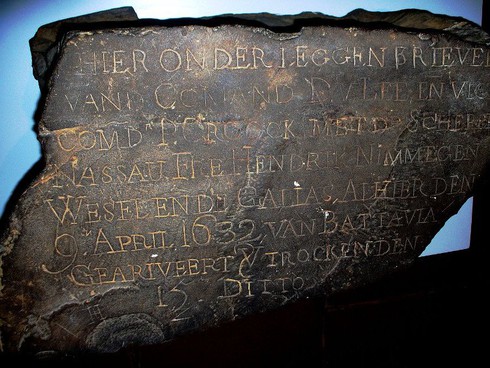 HIER ONDER LEGGEN BRIEVEN
VAND COMAND D VLEE, IN VIC
COMD P. CROOCK MET DE SCHEEP
NASSAU, FRE HENDRIK NIMMEGEN
WESFR EN DE GALIAS, ALHIER DEN
9 APRIL 1632, VAN BATTAVIA
GEARIVEERT & VTROCKEN DEN
15 DITTO